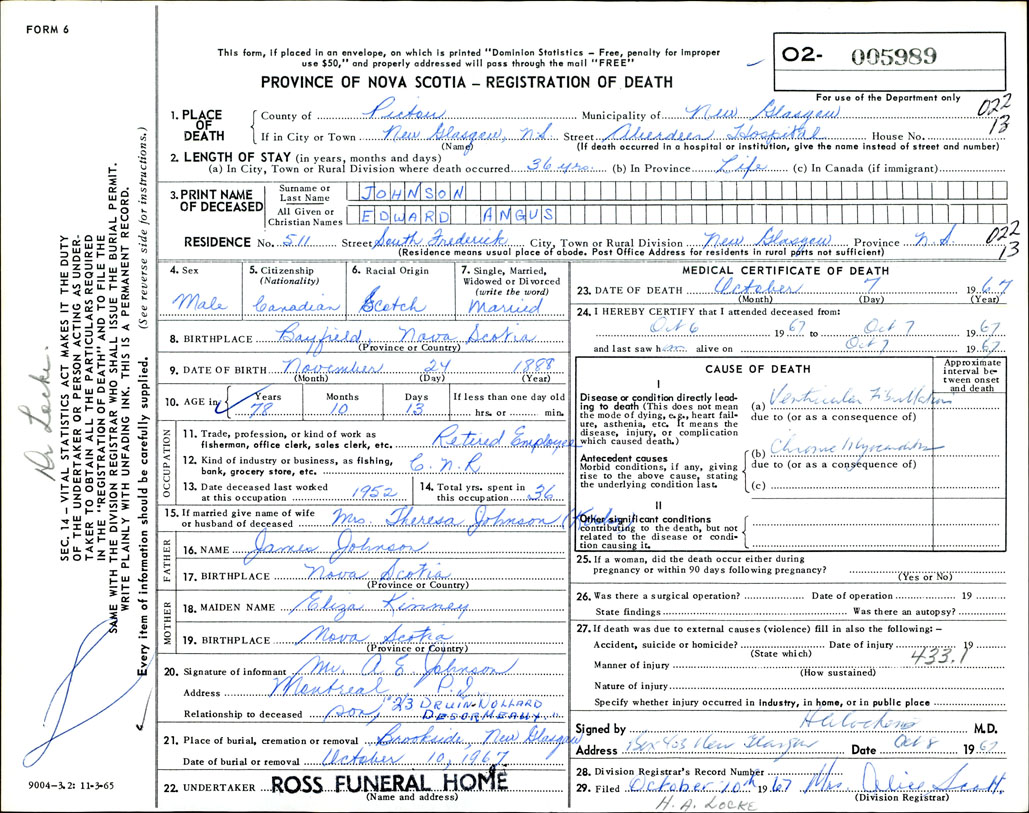 FORM 6
This form, if placed in an envelope, on which is printed "Dominion Statistics – Free, penalty for improper
use $50," and properly addressed will pass through the mail "FREE"
PROVINCE OF NOVA SCOTIA – REGISTRATION OF DEATH
O2- 005989
For use of the Department only
022
13
1. PLACE OF DEATH
County of Pictou Municipality of New Glasgow
If in City or Town New Glasgow, N.S. Street Aberdeen Hospital House No.
(Name) (If death occurred in a hospital or institution, give the name instead of street and number)
2. LENGTH OF STAY (in years, months and days)
(a) In City, Town or Rural Division where death occurred 36 yrs. (b) In Province Life (c) In Canada (if immigrant)
3. PRINT NAME OF DECEASED
Surname or Last Name JOHNSON
All Given or Christian Names EDWARD ANGUS
RESIDENCE No. 511 Street South Frederick City, Town or Rural Division New Glasgow Province N.S.
022
13
(Residence means usual place of abode. Post Office Address for residents in rural parts not sufficient)
4. Sex
Male
5. Citizenship (Nationality)
Canadian
6. Racial Origin
Scotch
7. Single, Married, Widowed or Divorced (write the word)
Married
8. BIRTHPLACE Bayfield, Nova Scotia
(Province or Country)
9. DATE OF BIRTH November 24 1888
(Month) (Day) (Year)
10. AGE in Years Months Days If less than one day old
78 10 13 hrs. or min.
OCCUPATION
11. Trade, profession, or kind of work as
fisherman, office clerk, sales clerk, etc. Retired Employee
12. Kind of industry or business, as fishing,
bank, grocery store, etc. C.N.R
13. Date deceased last worked at this occupation 1952
14. Total yrs. spent in this occupation 36
15. If married give name of wife
or husband of deceased Mrs. Theresa Johnson
FATHER
16. NAME James Johnson
17. BIRTHPLACE Nova Scotia
(Province or Country)
MOTHER
18. MAIDEN NAME Eliza Kinney
19. BIRTHPLACE Nova Scotia
(Province or Country)
20. Signature of informant Mr. A E Johnson
Address Montreal P.Q.
Relationship to deceased son
21. Place of burial, cremation or removal Brookside, New Glasgow
Date of burial or removal October 10, 1967
22. UNDERTAKER ROSS FUNERAL HOME
(Name and address)
MEDICAL CERTIFICATE OF DEATH
23. DATE OF DEATH October 7 1967
(Month) (Day) (Year)
24. I HEREBY CERTIFY that I attended deceased from:
Oct 6 1967 to Oct 7 1967
and last saw h alive on Oct 7 1967
CAUSE OF DEATH
Approximate interval between onset and death
I
Disease or condition directly leading to death (This does not
mean the mode of dying, e.g., heart failure, asthenia, etc. It means the
disease, injury, or complication
which caused death.)
(a) Ventricular Fibrillation
due to (or as a consequence of)
Antecedent causes
Morbid conditions, if any, giving
rise to the above cause, stating
the underlying condition last.
(b) Chronic Myocarditis
due to (or as consequence of)
(c)
II
Other significant conditions
contributing to the death, but not
related to the disease or condition causing it.
25. If a woman, did the death occur either during
pregnancy or within 90 days following pregnancy?
(Yes or No)
26. Was there a surgical operation? Date of operation 19
State findings Was there an autopsy?
27. If death was due to external causes (violence) fill in also the following: –
Accident, suicide or homicide? Date of injury 19
(State which)
433.1
Manner of injury
(How sustained)
Nature of injury
Specify whether injury occurred in Industry, in home, or in public place
Signed by M.D.
Address Box 433 New Glasgow Date Oct 8 1967
28. Division Registrar's Record Number
29. Filed October 10th 1967 Mrs. Alice Scott
(Division Registrar)
H. A. LOCKE
Dr Locke.
SEC. 14 – VITAL STATISTICS ACT MAKES IT THE DUTY
OF THE UNDERTAKER OR PERSON ACTING AS UNDER-
TAKER TO OBTAIN ALL THE PARTICULARS REQUIRED
IN THE "REGISTRATION OF DEATH" AND TO FILE THE
SAME WITH THE DIVISION REGISTRAR WHO SHALL ISSUE THE BURIAL PERMIT.
WRITE PLAINLY WITH UNFADING INK. THIS IS A PERMANENT RECORD.
Every item of information should be carefully supplied. (See reverse side for instructions.)
9004-3.2: 11-3-65